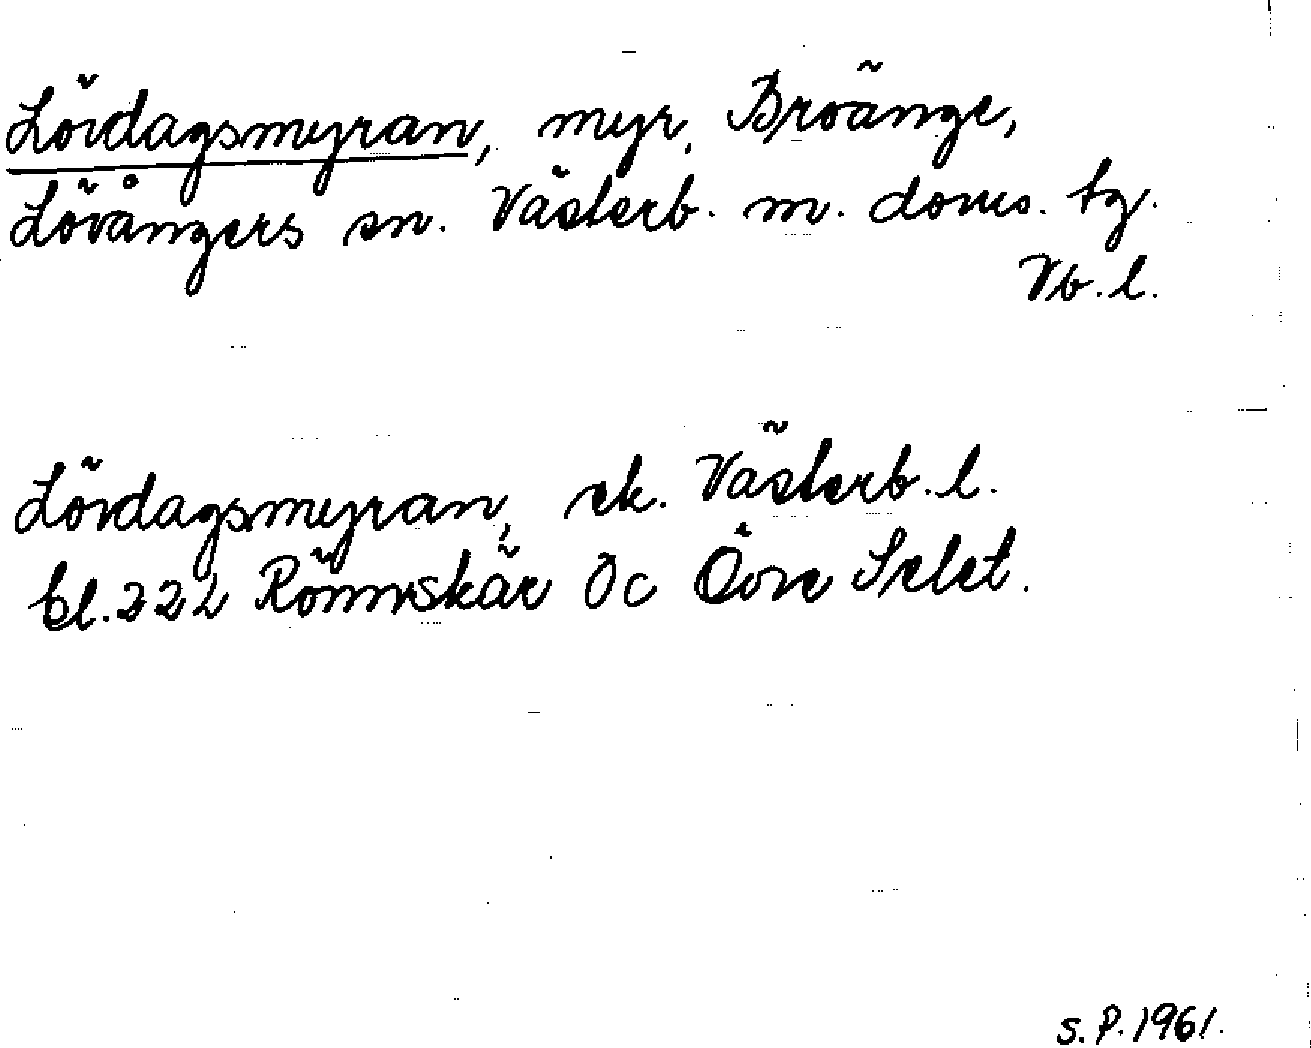 Lördagsmyran, myr, Broänge,
Lövångers sn. Västerb. m. doms. tg.
Vb. l.
Lördagsmyran, ek. Västerb. l.
bl. 222 Rönnskär Öc Övre Selet.
S. P. 1961.